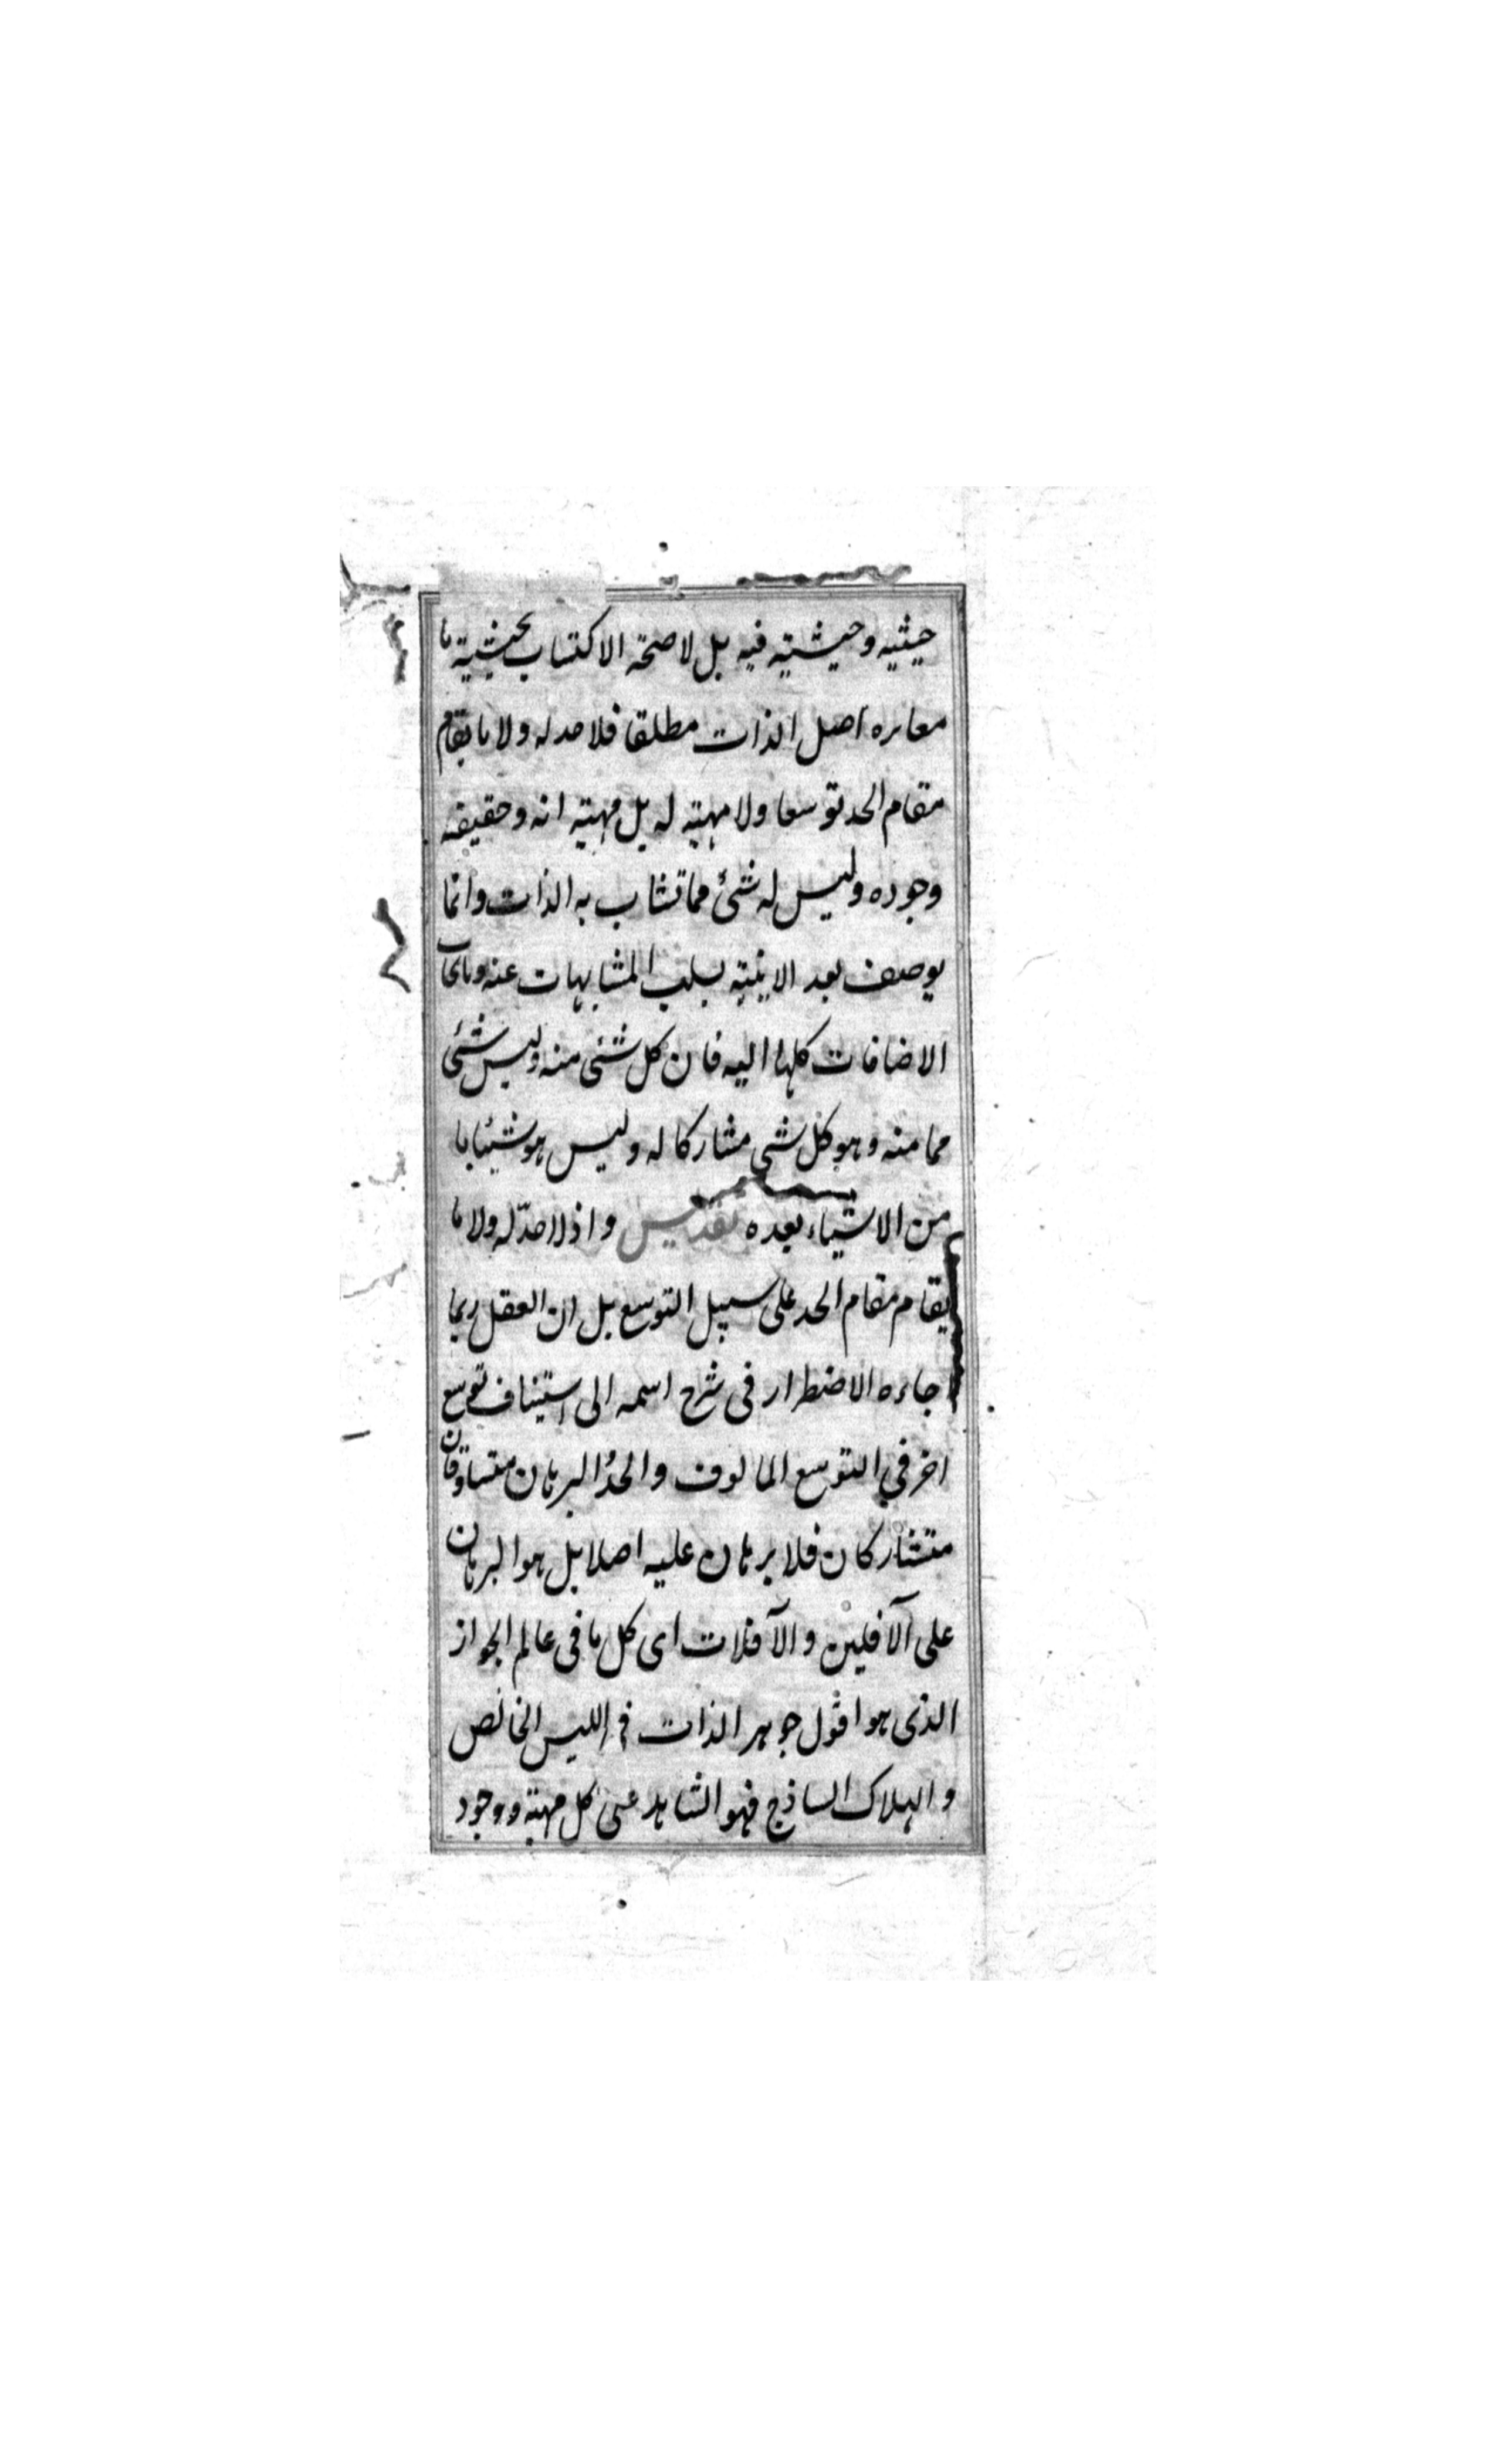 حيثيه وحيثيته فيه بل لا صحة الاكتساب بحيثية ما
معايره اصل الذات مطلقا فلا حد له ولا ما يقام
مقام الحد توسعا ولا مهية له بل مهيته انه وحقيقته
وجوده وليس له شئ مما تشاب به الذات وانما
يوصف بعد الانية بسلب المشابهات عنه
الاضافات كلها اليه فان كل شئ منه وليس شئ
مما منه وهو كل شي مشاركا له وليس هو شيئا ما
من الاشياء بعده تقديس واذ لا حدّ له ولا ما
يقام مقام الحد على سبيل التوسع بل ان العقل ربما
اجاءه الاضطرار فى شرح اسمه الى استيناف توسع
اخر في التوسع المالوف والحدُ البرهان متساوقان
متشاركان فلا برهان عليه اصلا بل هو البرهان
على الآفلين والآفلات اى كل ما فى عالم الجواز
الذى هو افول جوهر الذات فى الليس الخالص
والهلاك الساذج فهو الشاهد على كل مهية ووجود